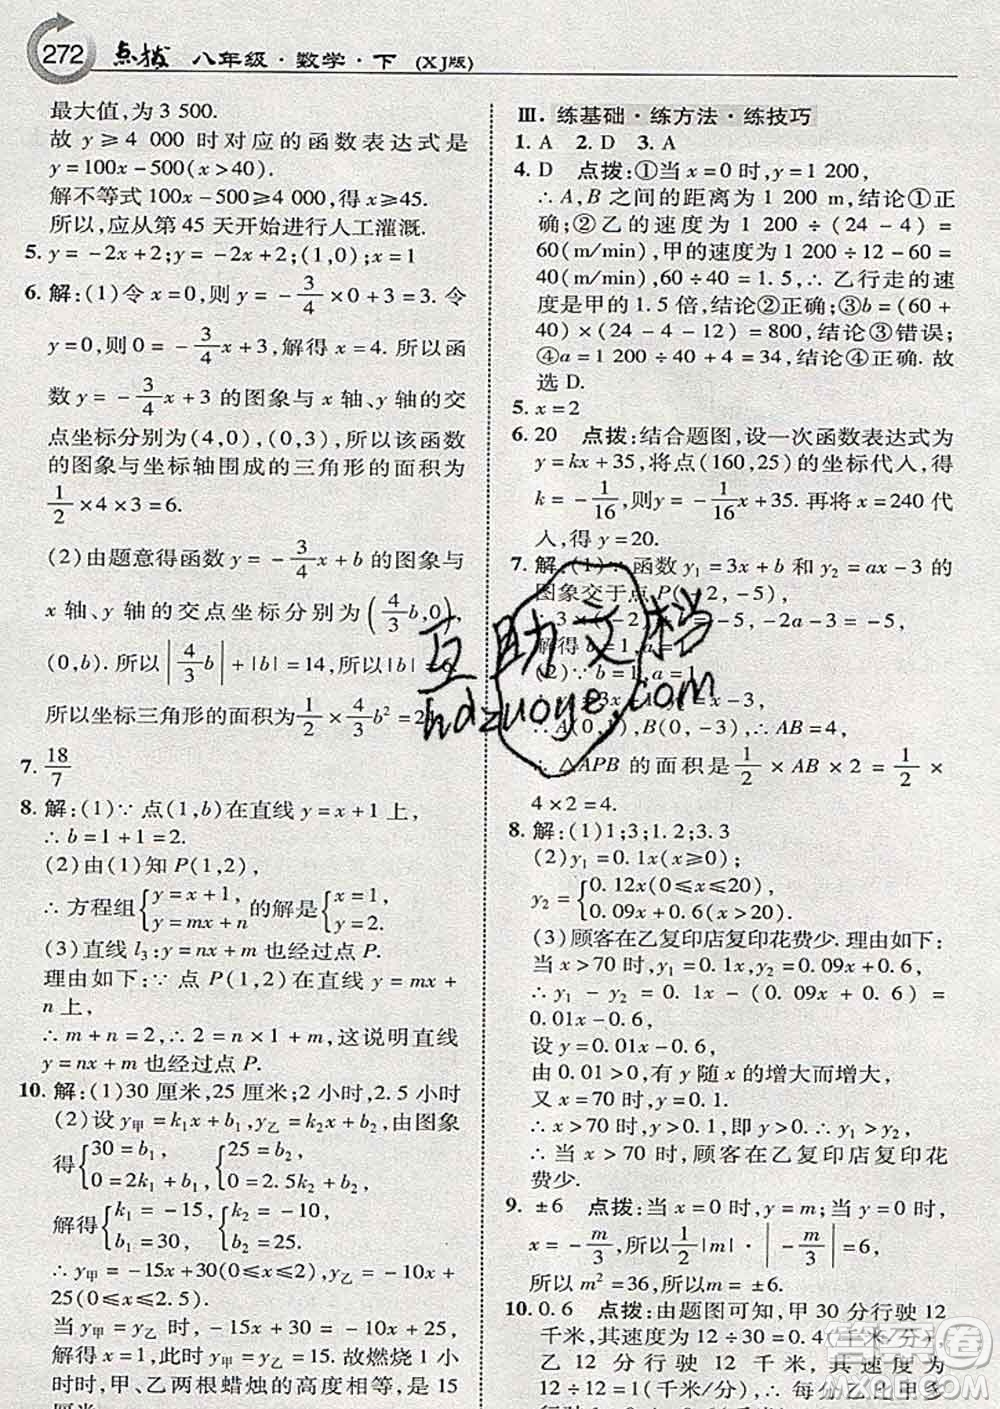 272 点拨 八年级·数学·下 (XJ版)
最大值,为 3 500.
故 y⩾4 000 时对应的函数表达式是
y=100x-500(x>40).
解不等式100x-500⩾4 000,得 x⩾45.
所以,应从第 45 天开始进行人工灌溉.
5. y=-2x+2;y=-2x+2;(1,0);x=1
6. 解:(1)令 x=0,则 y=-3/4×0+3=3. 令
y=0,则 0=-3/4x+3,解得 x=4. 所以函
数 y=-3/4x+3 的图象与 x 轴、y 轴的交
点坐标分别为(4,0),(0,3),所以该函数
的图象与坐标轴围成的三角形的面积为
1/2×4×3=6.
(2)由题意得函数 y=-3/4x+b 的图象与
x 轴、y 轴的交点坐标分别为(4/3b,0),
(0,b). 所以|4/3b|+|b|=14,所以|b|=6.
所以坐标三角形的面积为1/2×4/3b²=2
7. 18/7
8. 解:(1)∵点(1,b)在直线 y=x+1 上,
∴b=1+1=2.
(2)由(1)知 P(1,2),
∴方程组{y=x+1, y=mx+n 的解是{x=1, y=2.
(3)直线 l₃:y=nx+m 也经过点 P.
理由如下:∵点 P(1,2)在直线 y=mx+
n 上,
∴m+n=2,∴2=n×1+m,这说明直线
y=nx+m 也经过点 P.
10. 解:(1)30 厘米,25 厘米;2 小时,2.5 小时
(2)设 y甲=k₁x+b₁,y乙=k₂x+b₂,由图象
得{30=b₁, 0=2k₁+b₁, {25=b₂, 0=2.5k₂+b₂,
解得{k₁=-15, b₁=30, {k₂=-10, b₂=25.
∴y甲=-15x+30(0⩽x⩽2),y乙=-10x+
25(0⩽x⩽2.5).
当 y甲=y乙时,-15x+30=-10x+25,
解得 x=1,此时 y甲=y乙=15. 故燃烧 1 小
时时,甲、乙两根蜡烛的高度相等,是 15
厘米.
Ⅲ.练基础·练方法·练技巧
1. A 2. D 3. A
4. D 点拨:①当 x=0 时,y=1 200,
∴A,B 之间的距离为 1 200 m,结论①正
确;②乙的速度为 1 200÷(24-4)=
60(m/min),甲的速度为 1 200÷12-60=
40(m/min),60÷40=1.5,∴乙行走的速
度是甲的 1.5 倍,结论②正确;③b=(60+
40)×(24-4-12)=800,结论③错误;
④a=1 200÷40+4=34,结论④正确. 故
选 D.
5. x=2
6. 20 点拨:结合题图,设一次函数表达式为
y=kx+35,将点(160,25)的坐标代入,得
k=-1/16,则 y=-1/16x+35. 再将 x=240 代
入,得 y=20.
7. 解:(1)∵函数 y₁=3x+b 和 y₂=ax-3 的
图象交于点 P(-2,-5),
∴3×(-2)+b=-5,-2a-3=-5,
解得 b=1,a=1.
(2)∵b=1,a=1,
x-3,
∴A(0,1),B(0,-3),∴AB=4,
∴△APB 的面积是1/2×AB×2=1/2×
4×2=4.
8. 解:(1)1;3;1.2;3.3
(2)y₁=0.1x(x⩾0);
y₂={0.12x(0⩽x⩽20), 0.09x+0.6(x>20).
(3)顾客在乙复印店复印花费少. 理由如下:
当 x>70 时,y₁=0.1x,y₂=0.09x+0.6,
∴y₁-y₂=0.1x-(0.09x+0.6)=
0.01x-0.6,
设 y=0.01x-0.6,
由 0.01>0,得 y 随 x 的增大而增大,
又 x=70 时,y=0.1,
∴x>70 时,y>0.1,即 y>0,∴y₁>y₂,
∴当 x>70 时,顾客在乙复印店复印花
费少.
9. ±6 点拨:当 x=0 时,y=m;当 y=0 时,
x=-m/3,所以1/2|m|·|-m/3|=6,
所以 m²=36,所以 m=±6.
10. 0.6 点拨:由题图可知,甲 30 分行驶 12
千米,其速度为 12÷30=0.4(千米/分),
乙 12 分行驶 12 千米,其速度为
12÷12=1(千米/分),∴每分乙比甲多
互助文档
hdzuoye.com